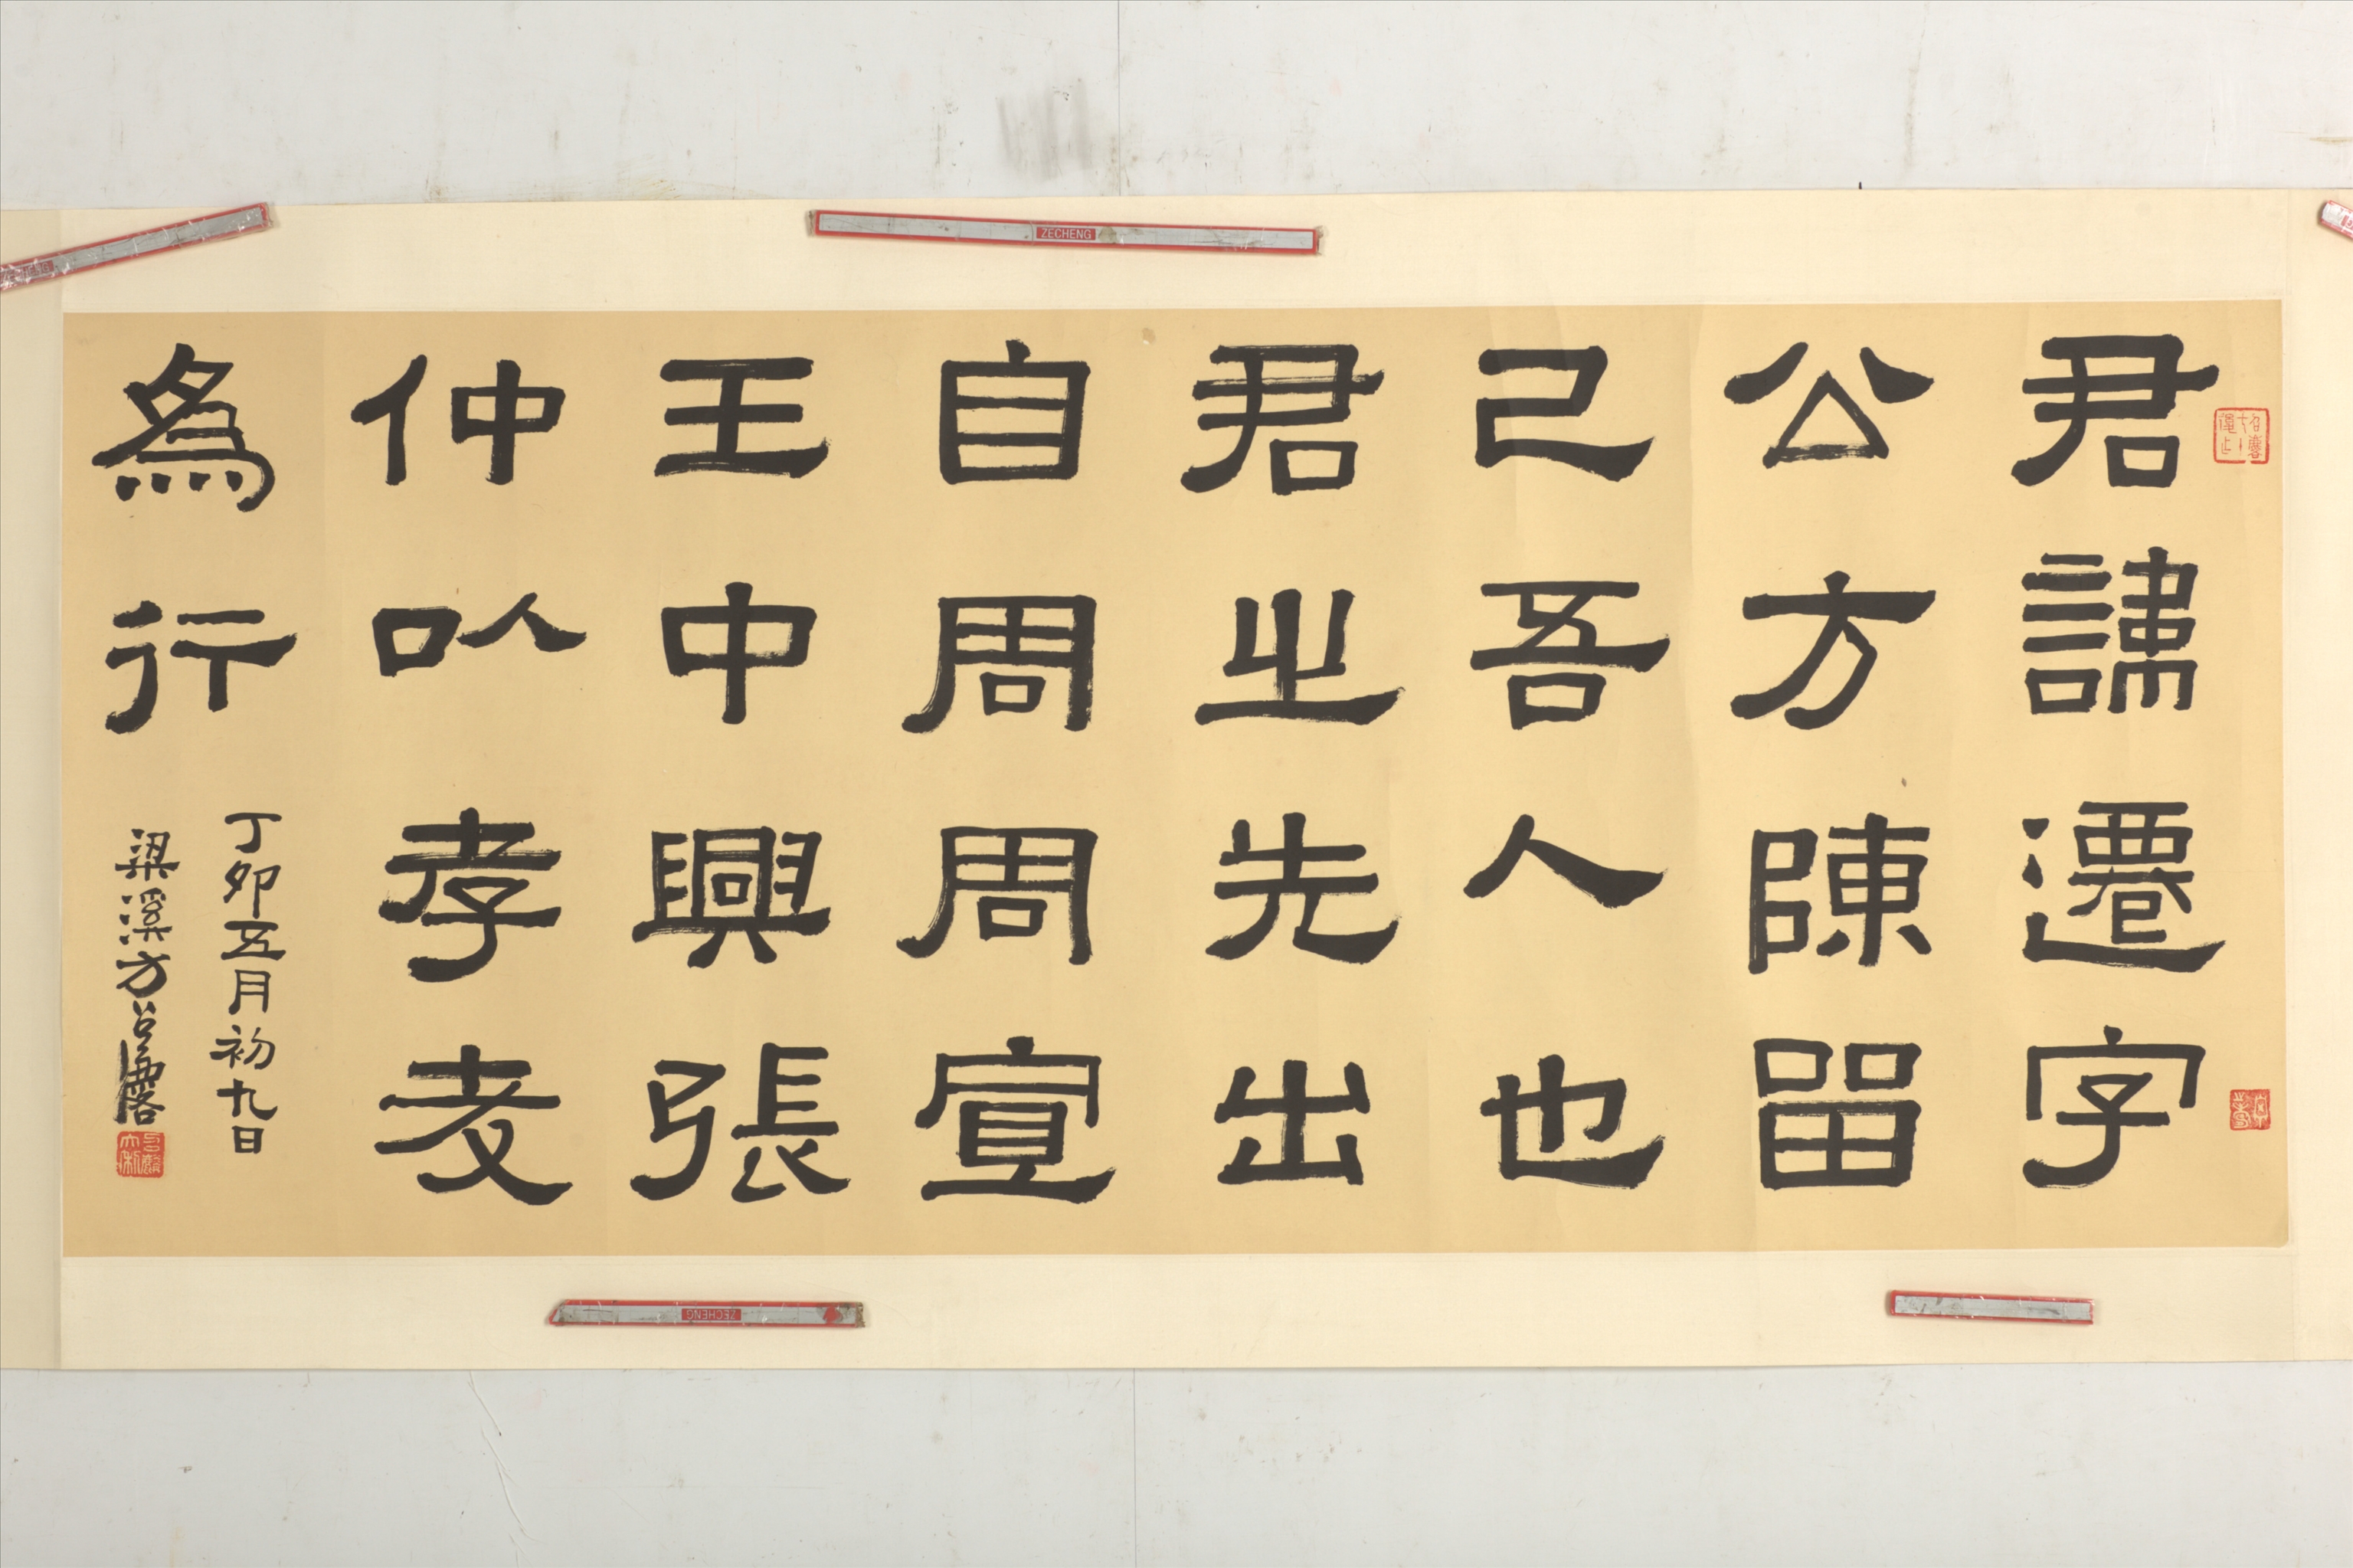 君諱遷字
公方陳留
己吾人也
君之先出
自周周宣
王中興張
仲以孝友
為行
丁卯五月初九日
梁溪方召麐
ZECHENG
ZECHENG